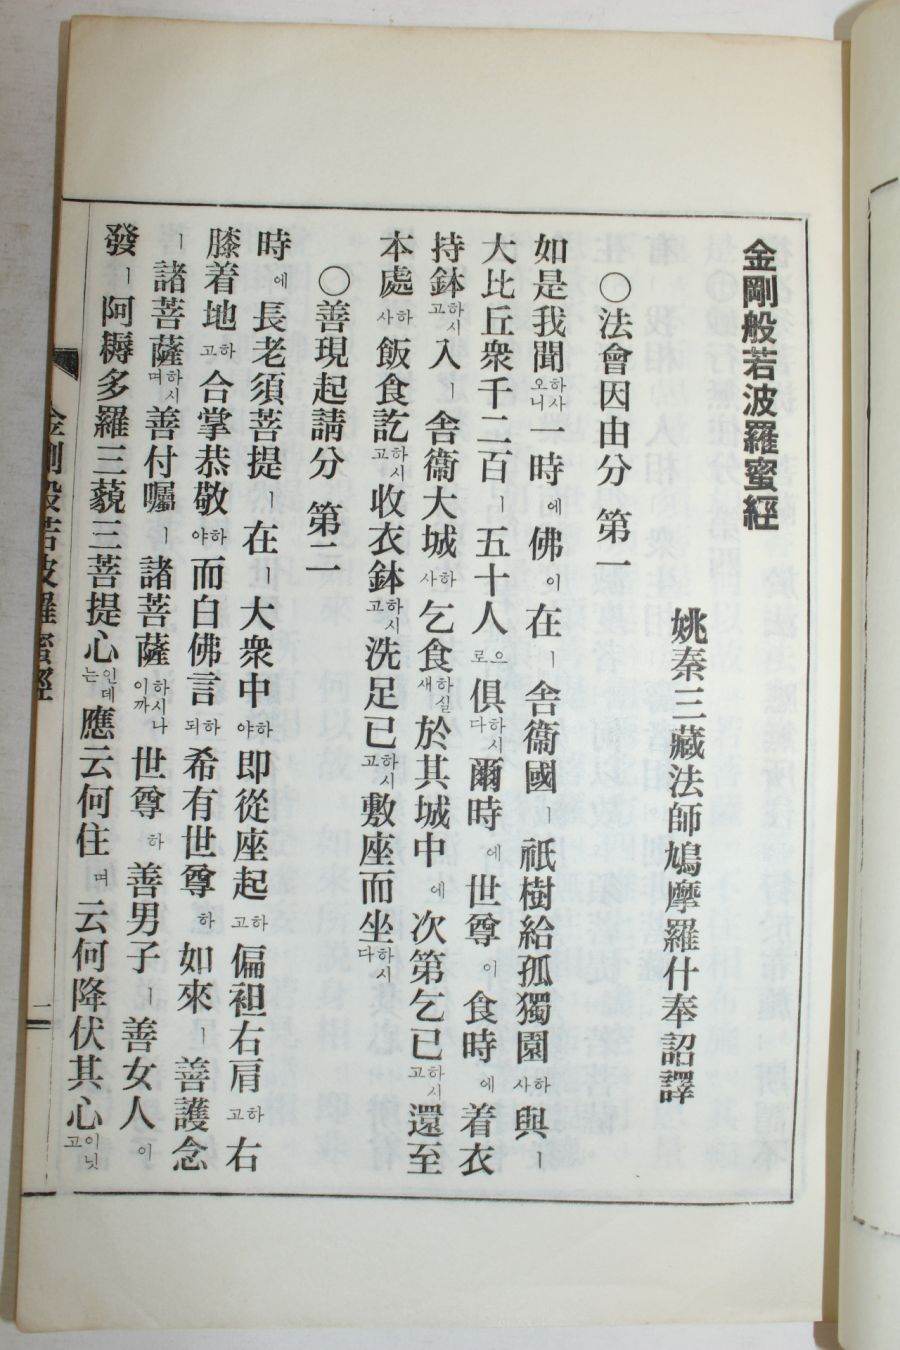 金剛般若波羅蜜經
姚秦三藏法師鳩摩羅什奉詔譯
○法會因由分 第一
如是我聞하사오니 時에 佛이 在ㅣ 舍衞國ㅣ 祇樹給孤獨園하사 與ㅣ
大比丘衆千二百ㅣ 五十人으로 俱하시다 爾時에 世尊이 食時에 着衣
持鉢하시고 入ㅣ 舍衞大城하사 乞食하실새 於其城中에 次第乞已하시고 還至
本處하사 飯食訖하시고 收衣鉢하시고 洗足已하시고 敷座而坐하시다
○善現起請分 第二
時에 長老須菩提ㅣ 在ㅣ 大衆中하야 即從座起하고 偏袒右肩하고 右
膝着地하고 合掌恭敬하야 而白佛言하되 希有世尊하 如來ㅣ 善護念
ㅣ 諸菩薩하시며 善付囑ㅣ 諸菩薩하시나이까 世尊하 善男子ㅣ 善女人이
發ㅣ 阿耨多羅三藐三菩提心인데는 應云何住며 云何降伏其心이닛고
金剛般若波羅蜜經
一